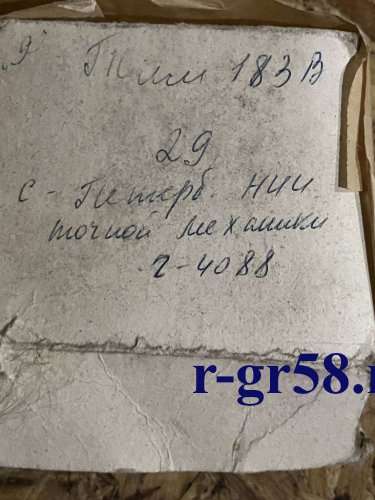 9 Гпмм 183В
29
С-Петерб. НИИ
точной механики
г-4088
r-gr58.r